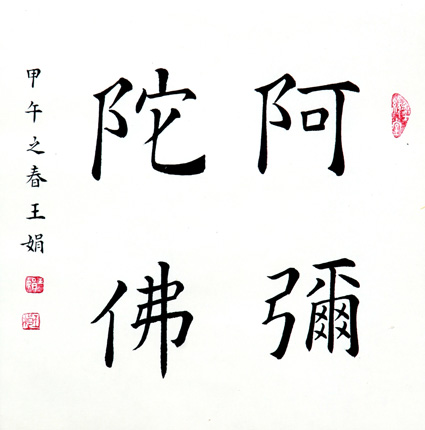 阿彌
陀佛
甲午之春王娟